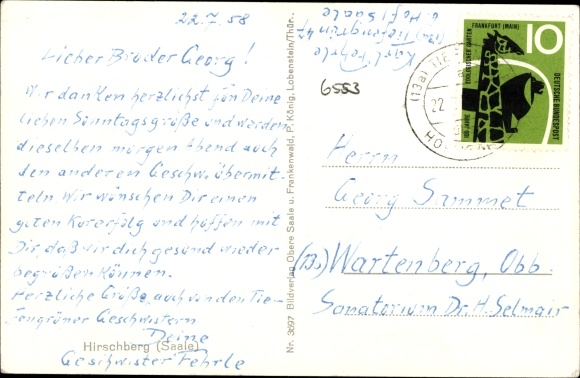 22.7.58
Lieber Bruder Georg!
Wir danken herzlichst für Deine
lieben Sonntagsgrüße und werden
dieselben morgen Abend auch
den anderen Geschw. übermit-
teln. Wir wünschen Dir einen
guten Kurerfolg und hoffen mit
Dir, daß wir dich gesund wieder
begrüßen können.
Herzliche Grüße auch von den Tie-
fengrüner Geschwistern
Deine
Geschwister Fehrle
Hirschberg (Saale)
Nr. 3697 Bildverlag Obere Saale u. Frankenwald, P. König, Lobenstein/Thür.
Karl Fehrle
(13a) Tiefengrün 47
ü. Hof/Saale
6553
(13a) TIE
22.
HO
10
FRANKFURT (MAIN)
ZOOLOGISCHER GARTEN
100 JAHRE
DEUTSCHE BUNDESPOST
Herrn
Georg Sammet
(13b) Wartenberg, Obb.
Sanatorium Dr. H. Selmair